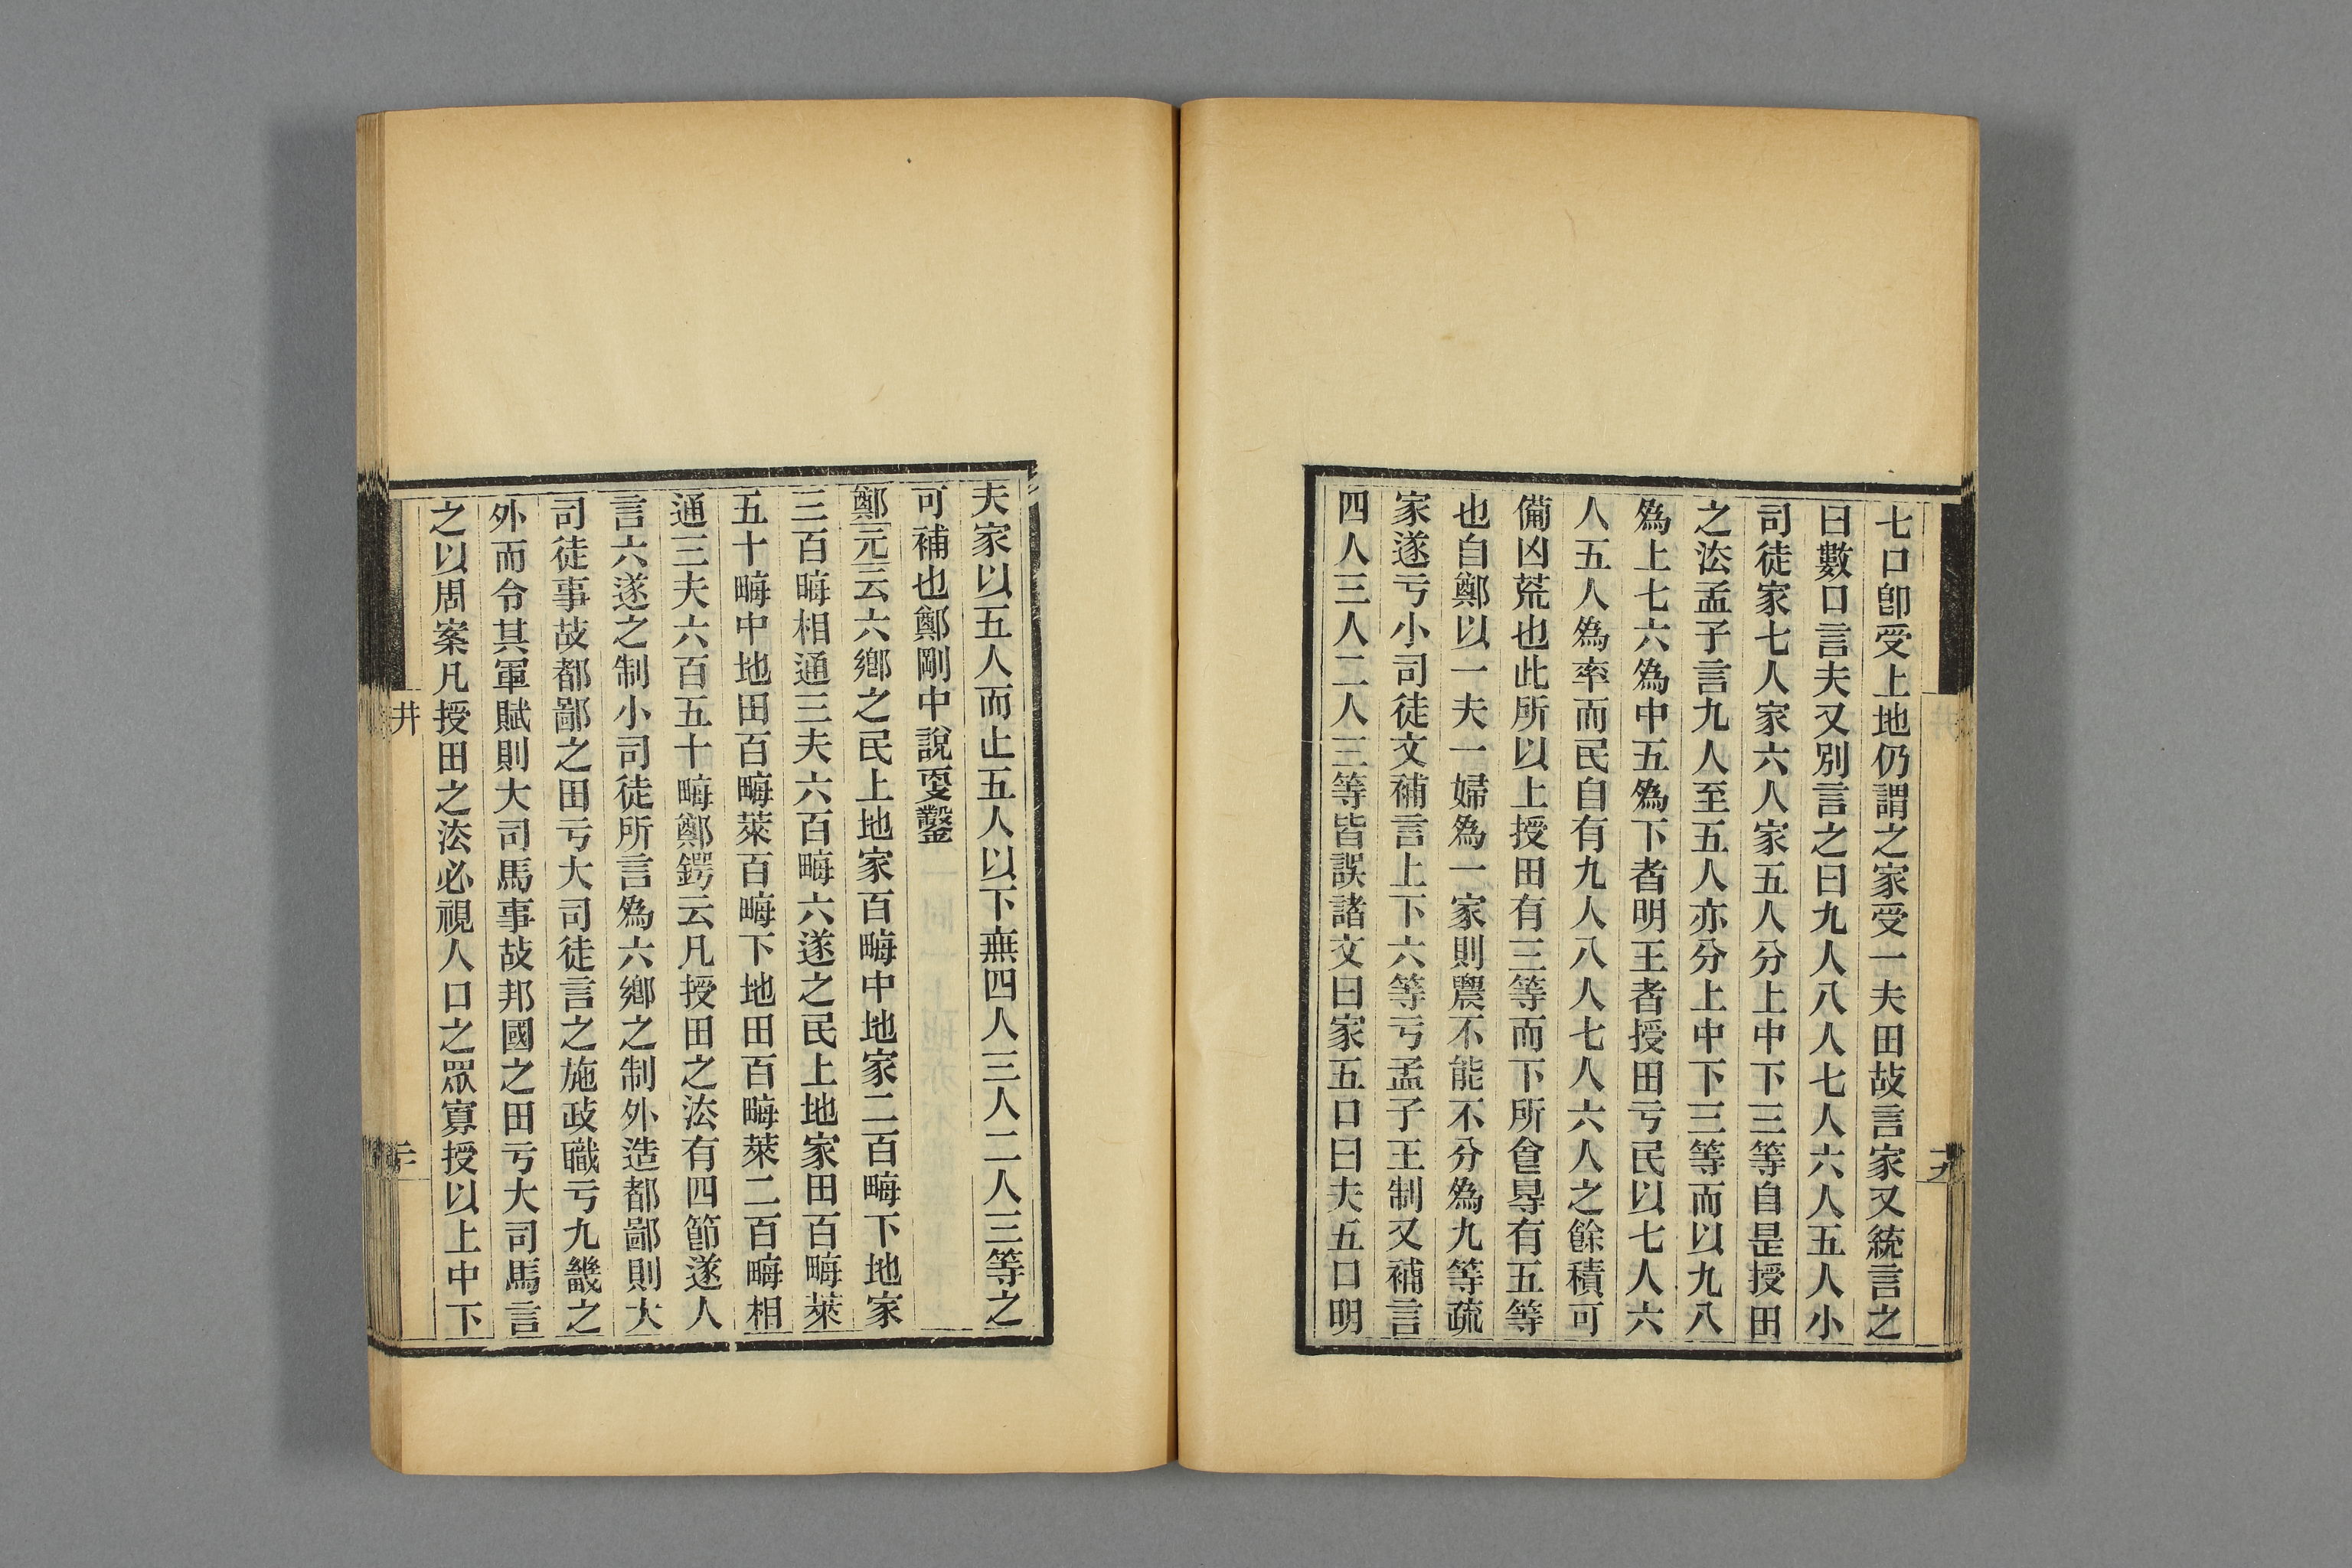 七口卽受上地仍謂之家受一夫田故言家又統言之
曰數口言夫又別言之曰九人八人七人六人五人小
司徒家七人家六人家五人分上中下三等自是授田
之法孟子言九人至五人亦分上中下三等而以九八
爲上七六爲中五爲下者明王者授田亏民以七人六
人五人爲率而民自有九人八人七人六人之餘積可
備凶荒也此所以上授田有三等而下所㑹㝵有五等
也自鄭以一夫一婦爲一家則農不能不分爲九等疏
家遂亏小司徒文補言上下六等亏孟子王制又補言
四人三人二人三等皆誤諸文曰家五口曰夫五口明
夫家以五人而止五人以下無四人三人二人三等之
可補也鄭剛中說㪅鑿
鄭元云六鄉之民上地家百畮中地家二百畮下地家
三百畮相通三夫六百畮六遂之民上地家田百畮萊
五十畮中地田百畮萊百畮下地田百畮萊二百畮相
通三夫六百五十畮鄭鍔云凡授田之法有四節遂人
言六遂之制小司徒所言爲六鄉之制外造都鄙則大
司徒事故都鄙之田亏大司徒言之施政職亏九畿之
外而令其軍賦則大司馬事故邦國之田亏大司馬言
之以周案凡授田之法必視人口之眾寡授以上中下
井